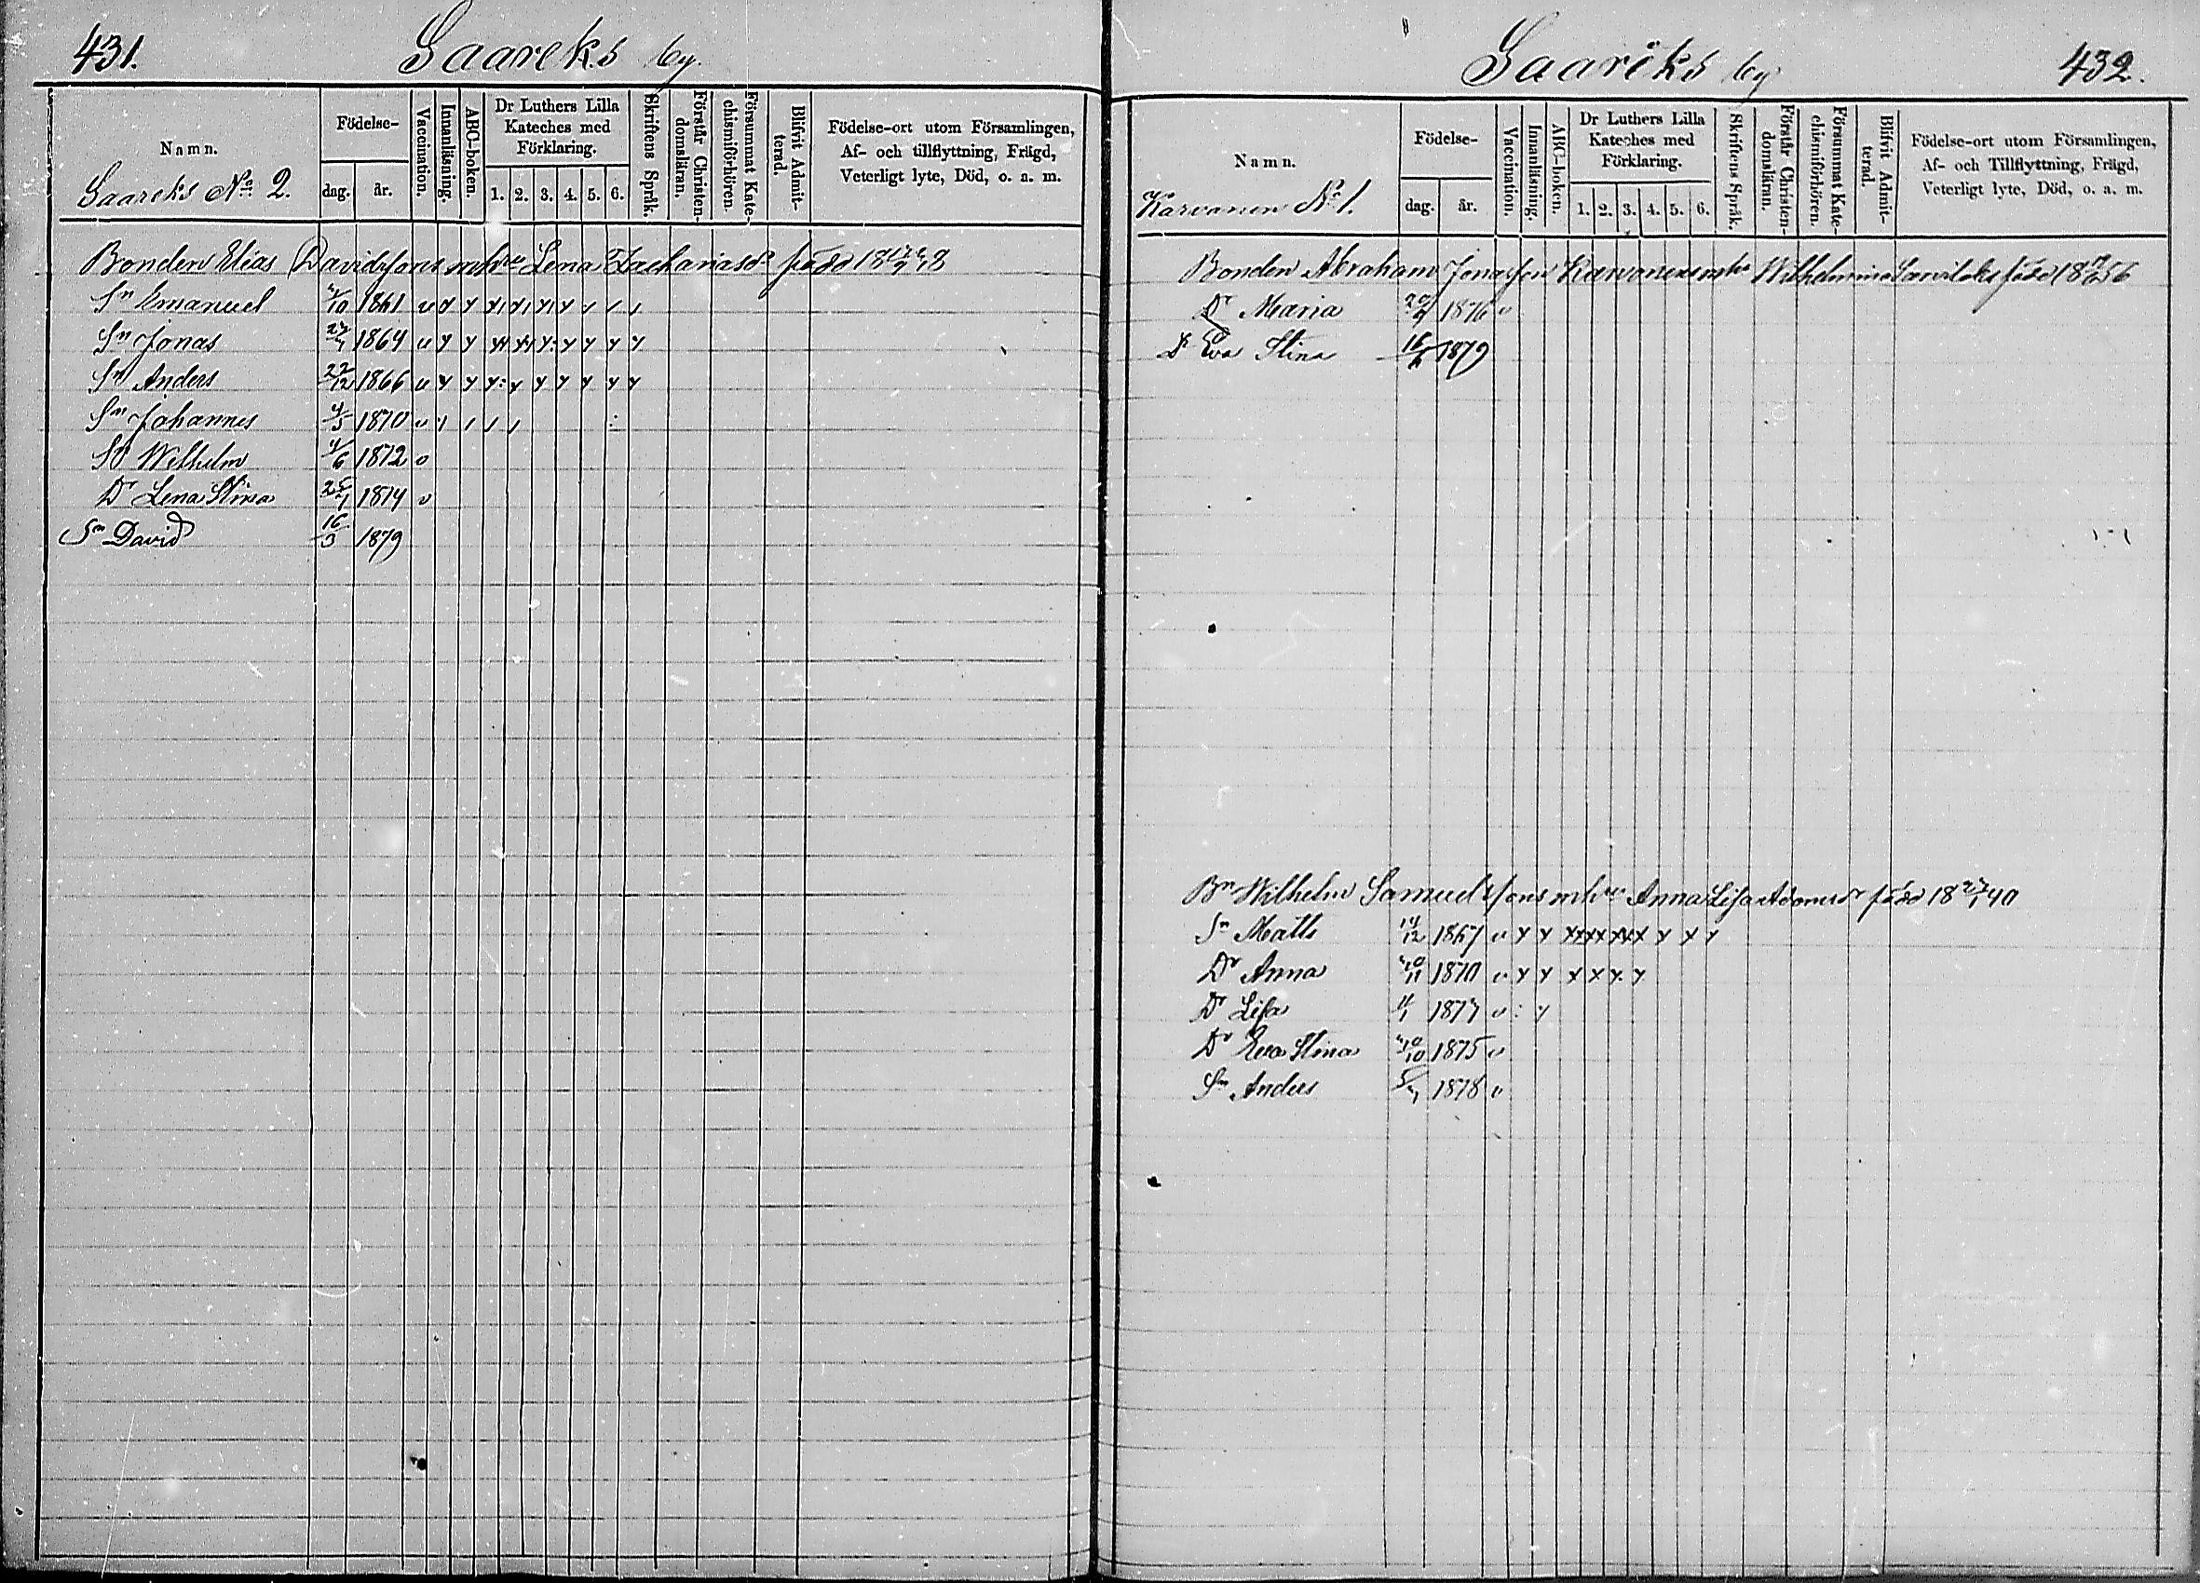 431.
Saareks by.
Namn.
Saareks No 2.
Födelse-
dag.
år.
Vaccination.
Innanläsning.
ABC-boken.
Dr Luthers Lilla
Kateches med
Förklaring.
1. 2. 3. 4. 5. 6.
Skriftens Språk.
Förstår Christen-
domsläran.
Försummat Kate-
chismiförhören.
Blifvit Admit-
terad.
Födelse-ort utom Församlingen,
Af- och tillflyttning, Frägd,
Veterligt lyte, Död, o. a. m.
Bonden Elias Davidssons m hru Lena Zachariasdr född
Sn Emanuel 1861
Sn Jonas 1864
Sn Anders 22/12 1866
Sn Johannes 4/5 1870
Sn Wilhelm 1872
Dr Lena Stina 1874
Sn David 16/3 1879
Saareks by
432.
Namn.
Karvonen No 1.
Födelse-
dag.
år.
Vaccination.
Innanläsning.
ABC-boken.
Dr Luthers Lilla
Kateches med
Förklaring.
1. 2. 3. 4. 5. 6.
Skriftens Språk.
Förstår Christen-
domsläran.
Försummat Kate-
chismiförhören.
Blifvit Admit-
terad.
Födelse-ort utom Församlingen,
Af- och Tillflyttning, Frägd,
Veterligt lyte, Död, o. a. m.
Bonden Abraham Jonasson Karvonens m hu Wilhelmina född
Dr Maria 1876
Dr Eva Stina 1879
Bn Wilhelm Samuelssons m hru Anna Lisa Adamsdr född 18 27/1 40
Sn Matts 14/12 1867
Dr Anna 1870
Dr Lisa 1873
Dr Eva Stina 1875
Sn Anders 1878